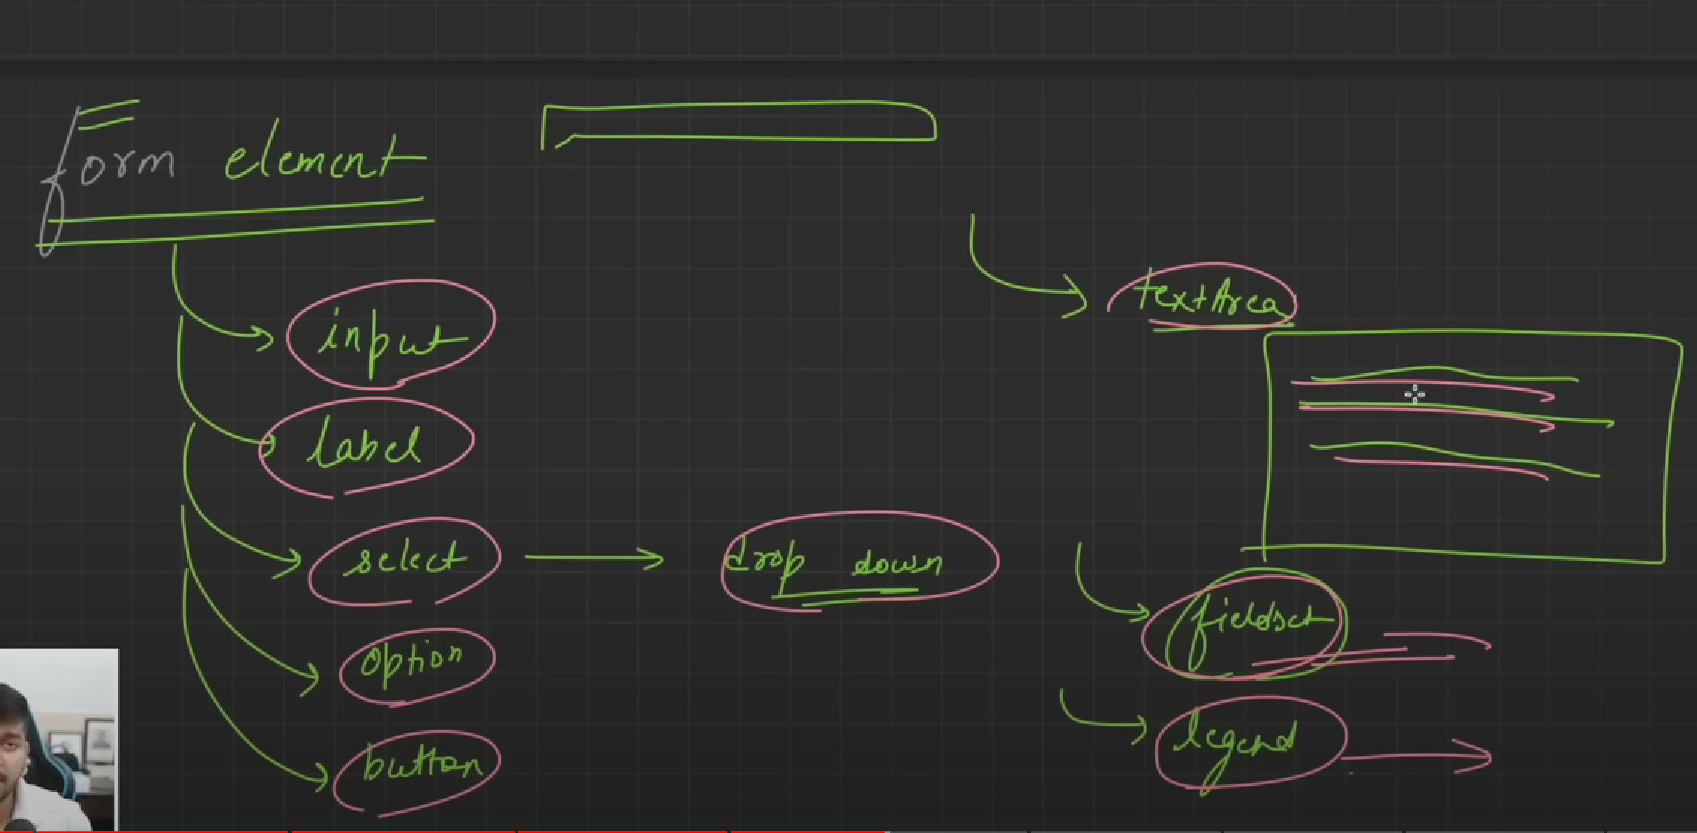 form element
input
label
select
drop down
option
button
textArea
fieldset
legend